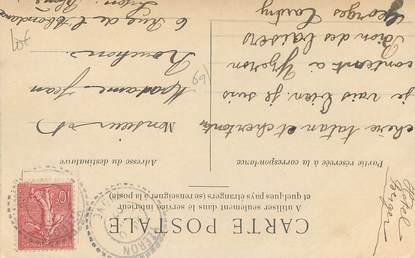 CARTE POSTALE
A utiliser seulement dans le service intérieur
et quelques pays étrangers (se renseigner à la poste)
Partie réservée à la correspondance
Adresse du destinataire
chère tatan et cher tonton
je vais bien je suis
content à Yzeron
bon des baisers
Georges
Monsieur et
Madame Jean
6 Rue de l'Abondance
Lyon Rhône
YZERON
10
69
Lot